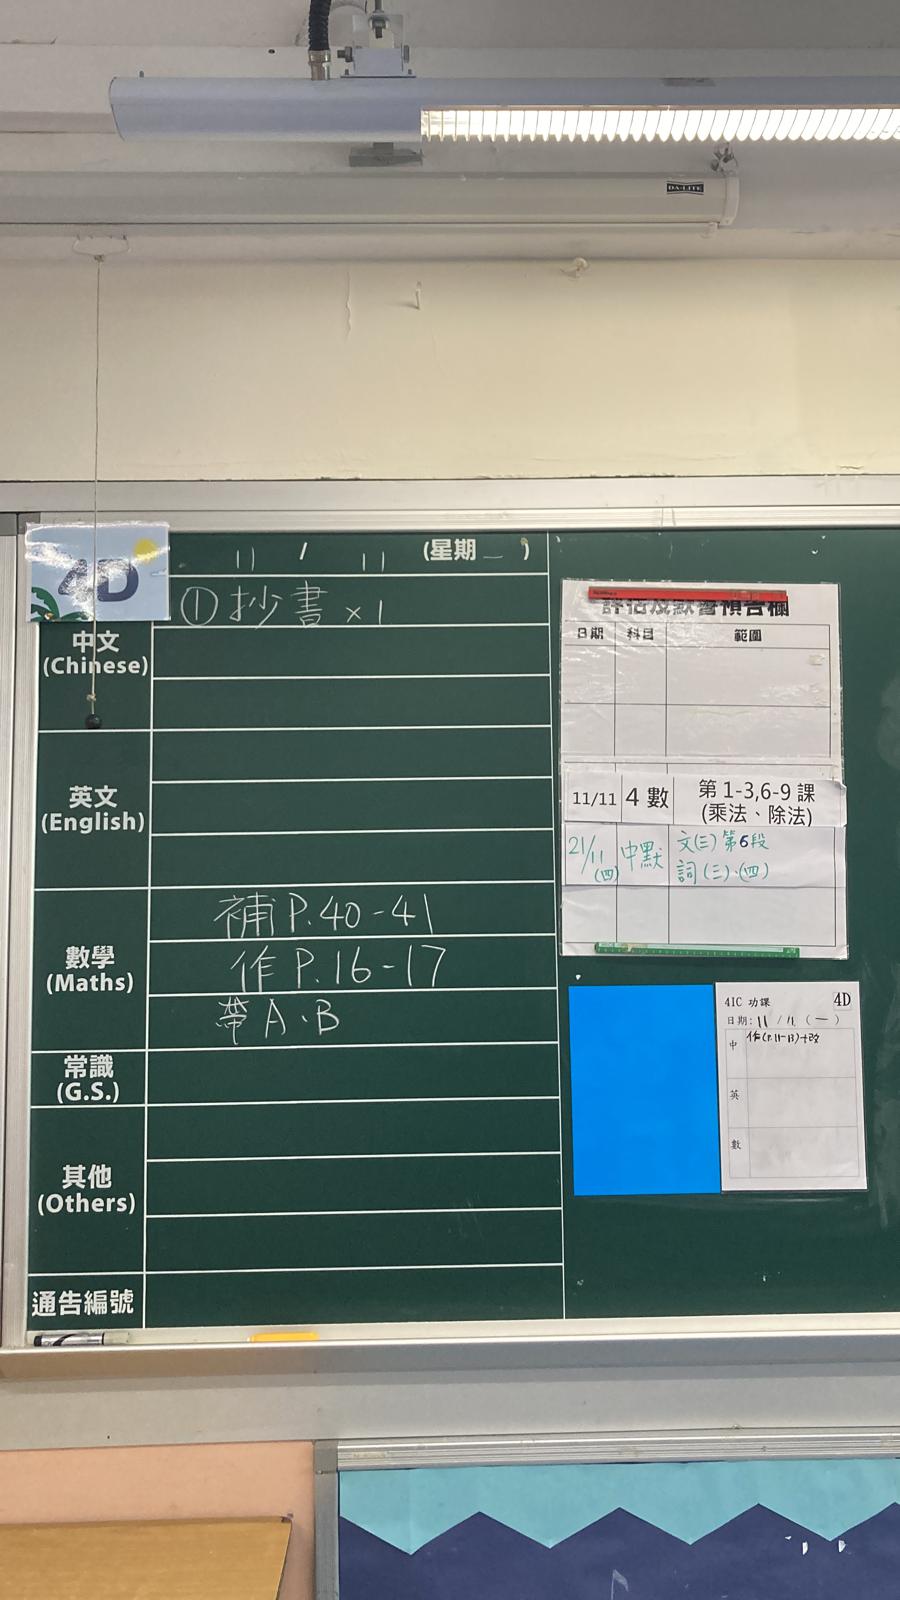 DA-LITE
4D
11 / 11 (星期一)
中文
(Chinese)
① 抄書 x1
英文
(English)
數學
(Maths)
補 P.40-41
作 P.16-17
帶 A、B
常識
(G.S.)
其他
(Others)
通告編號
評估及默書預告欄
日期 科目 範圍
11/11 4 數 第 1-3,6-9 課
(乘法、除法)
21/11 (四) 中默 文(三)第6段
詞(三)、(四)
4IC 功課 4D
日期: 11 / 11 (一)
中 作(P.11-13)+改
英
數